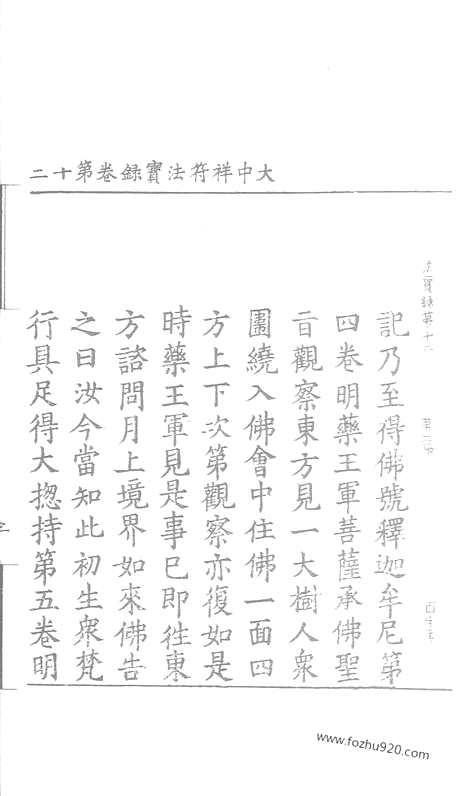 大中祥符法寳錄卷第十二
記乃至得佛號釋迦牟尼第
四卷明藥王軍菩薩承佛聖
㫖觀察東方見一大樹人衆
圍繞入佛會中住佛一面四
方上下次第觀察亦復如是
時藥王軍見是事已即往東
方諮問月上境界如來佛告
之曰汝今當知此初生衆梵
行具足得大揔持第五卷明
www.fozhu920.com